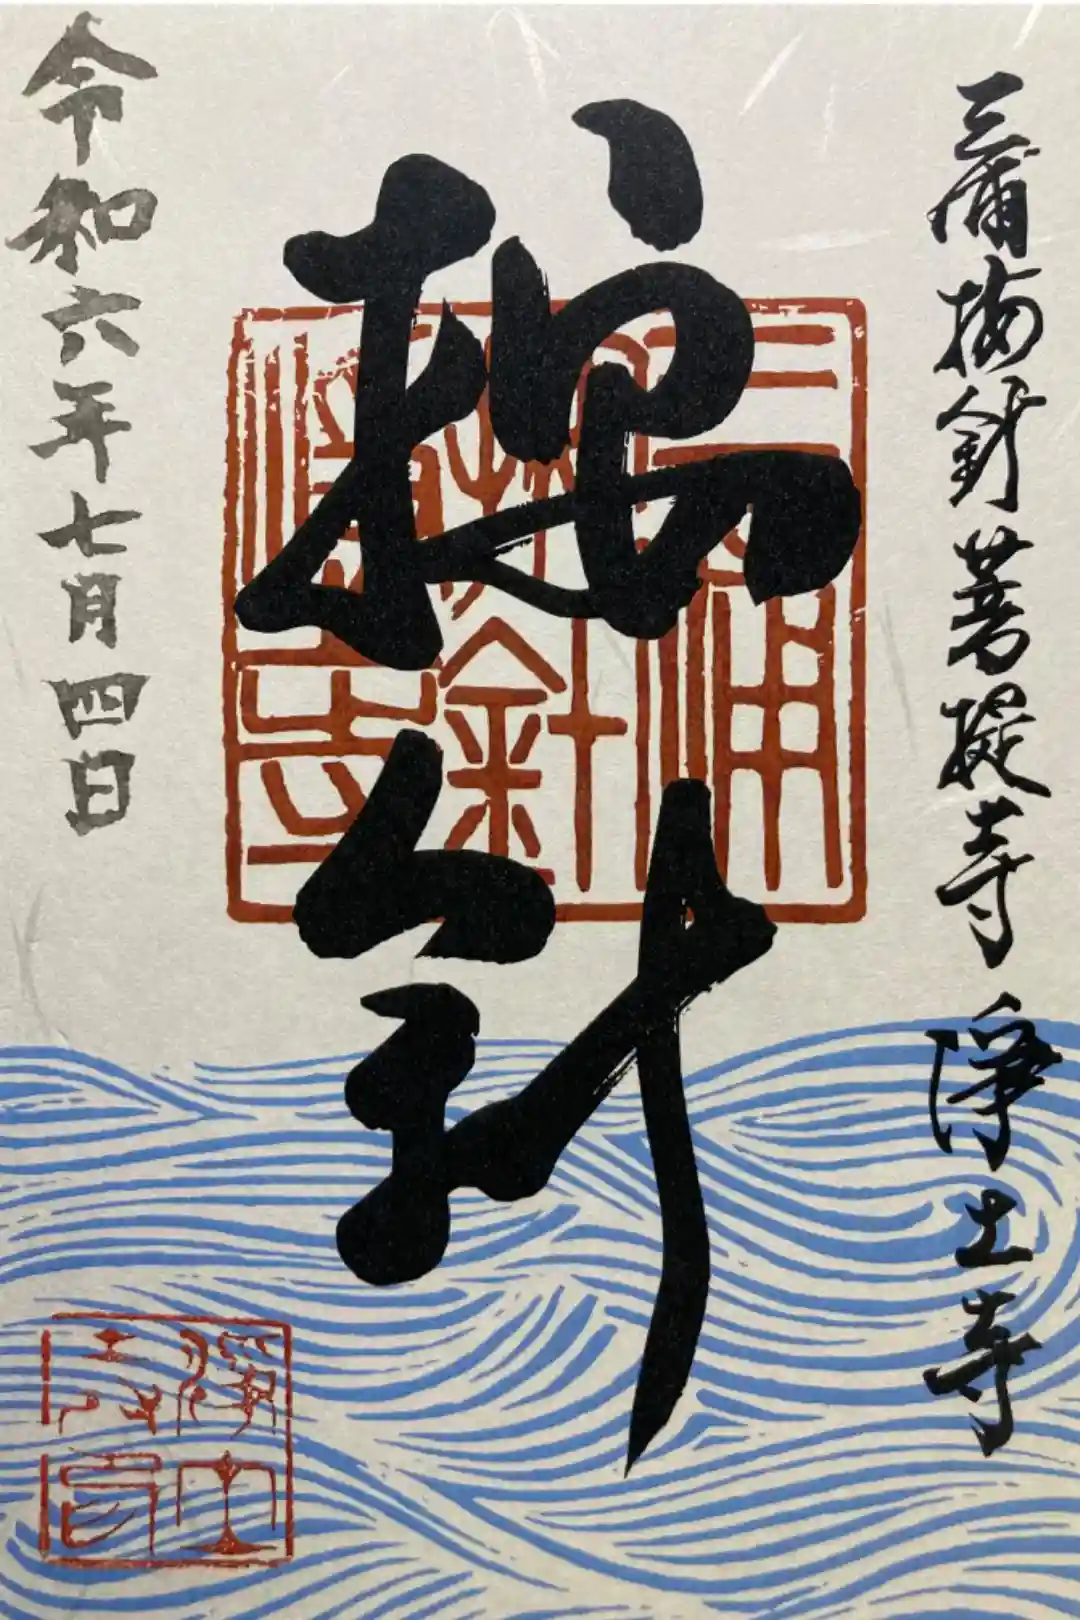 三浦按針菩提寺 淨土寺
按針
令和六年七月四日
三浦
按針
淨土
寺印